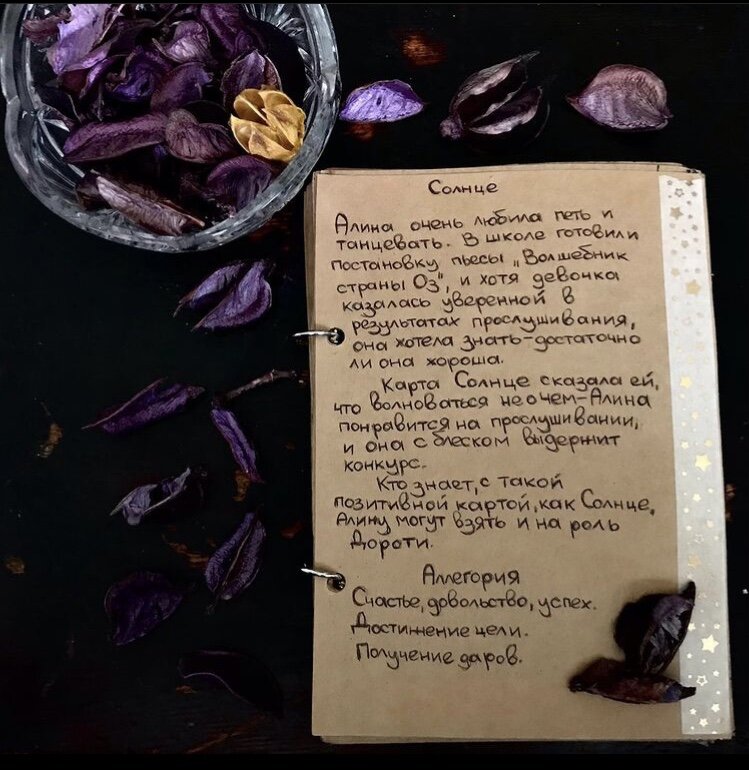 Солнце
Алина очень любила петь и
танцевать. В школе готовили
постановку пьесы „Волшебник
страны Оз", и хотя девочка
казалась уверенной в
результатах прослушивания,
она хотела знать-достаточно
ли она хороша.
Карта Солнце сказала ей,
что волноваться не о чем-Алина
понравится на прослушивании,
и она с блеском выдержит
конкурс.
Кто знает, с такой
позитивной картой, как Солнце,
Алину могут взять и на роль
Дороти.
Аллегория
Счастье, довольство, успех.
Достижение цели.
Получение даров.